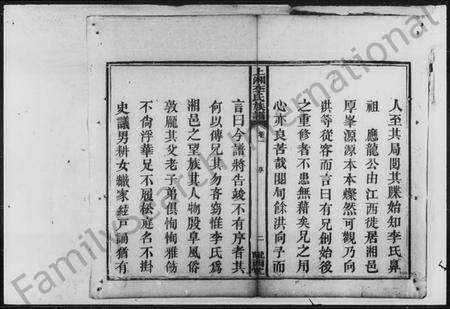 人至其局閱其牒始知李氏鼻
祖　應龍公由江西徙居湘邑
厚峯源源本本燦然可觀乃向
洪等從容而言曰有兄創始後
之重修者不患無藉矣兄之用
心亦良苦哉閱旬餘洪向予而
上湘李氏族譜　卷　序　二
言曰今譜將告竣不有序者其
何以傳兄其勿吝窃惟李氏爲
湘邑之望族其人物殷阜風俗
敦龐其父老子弟俱恂恂雅飭
不尚浮華足不履松庭名不掛
史議男耕女織家絃戶誦猶有
FamilySearch International